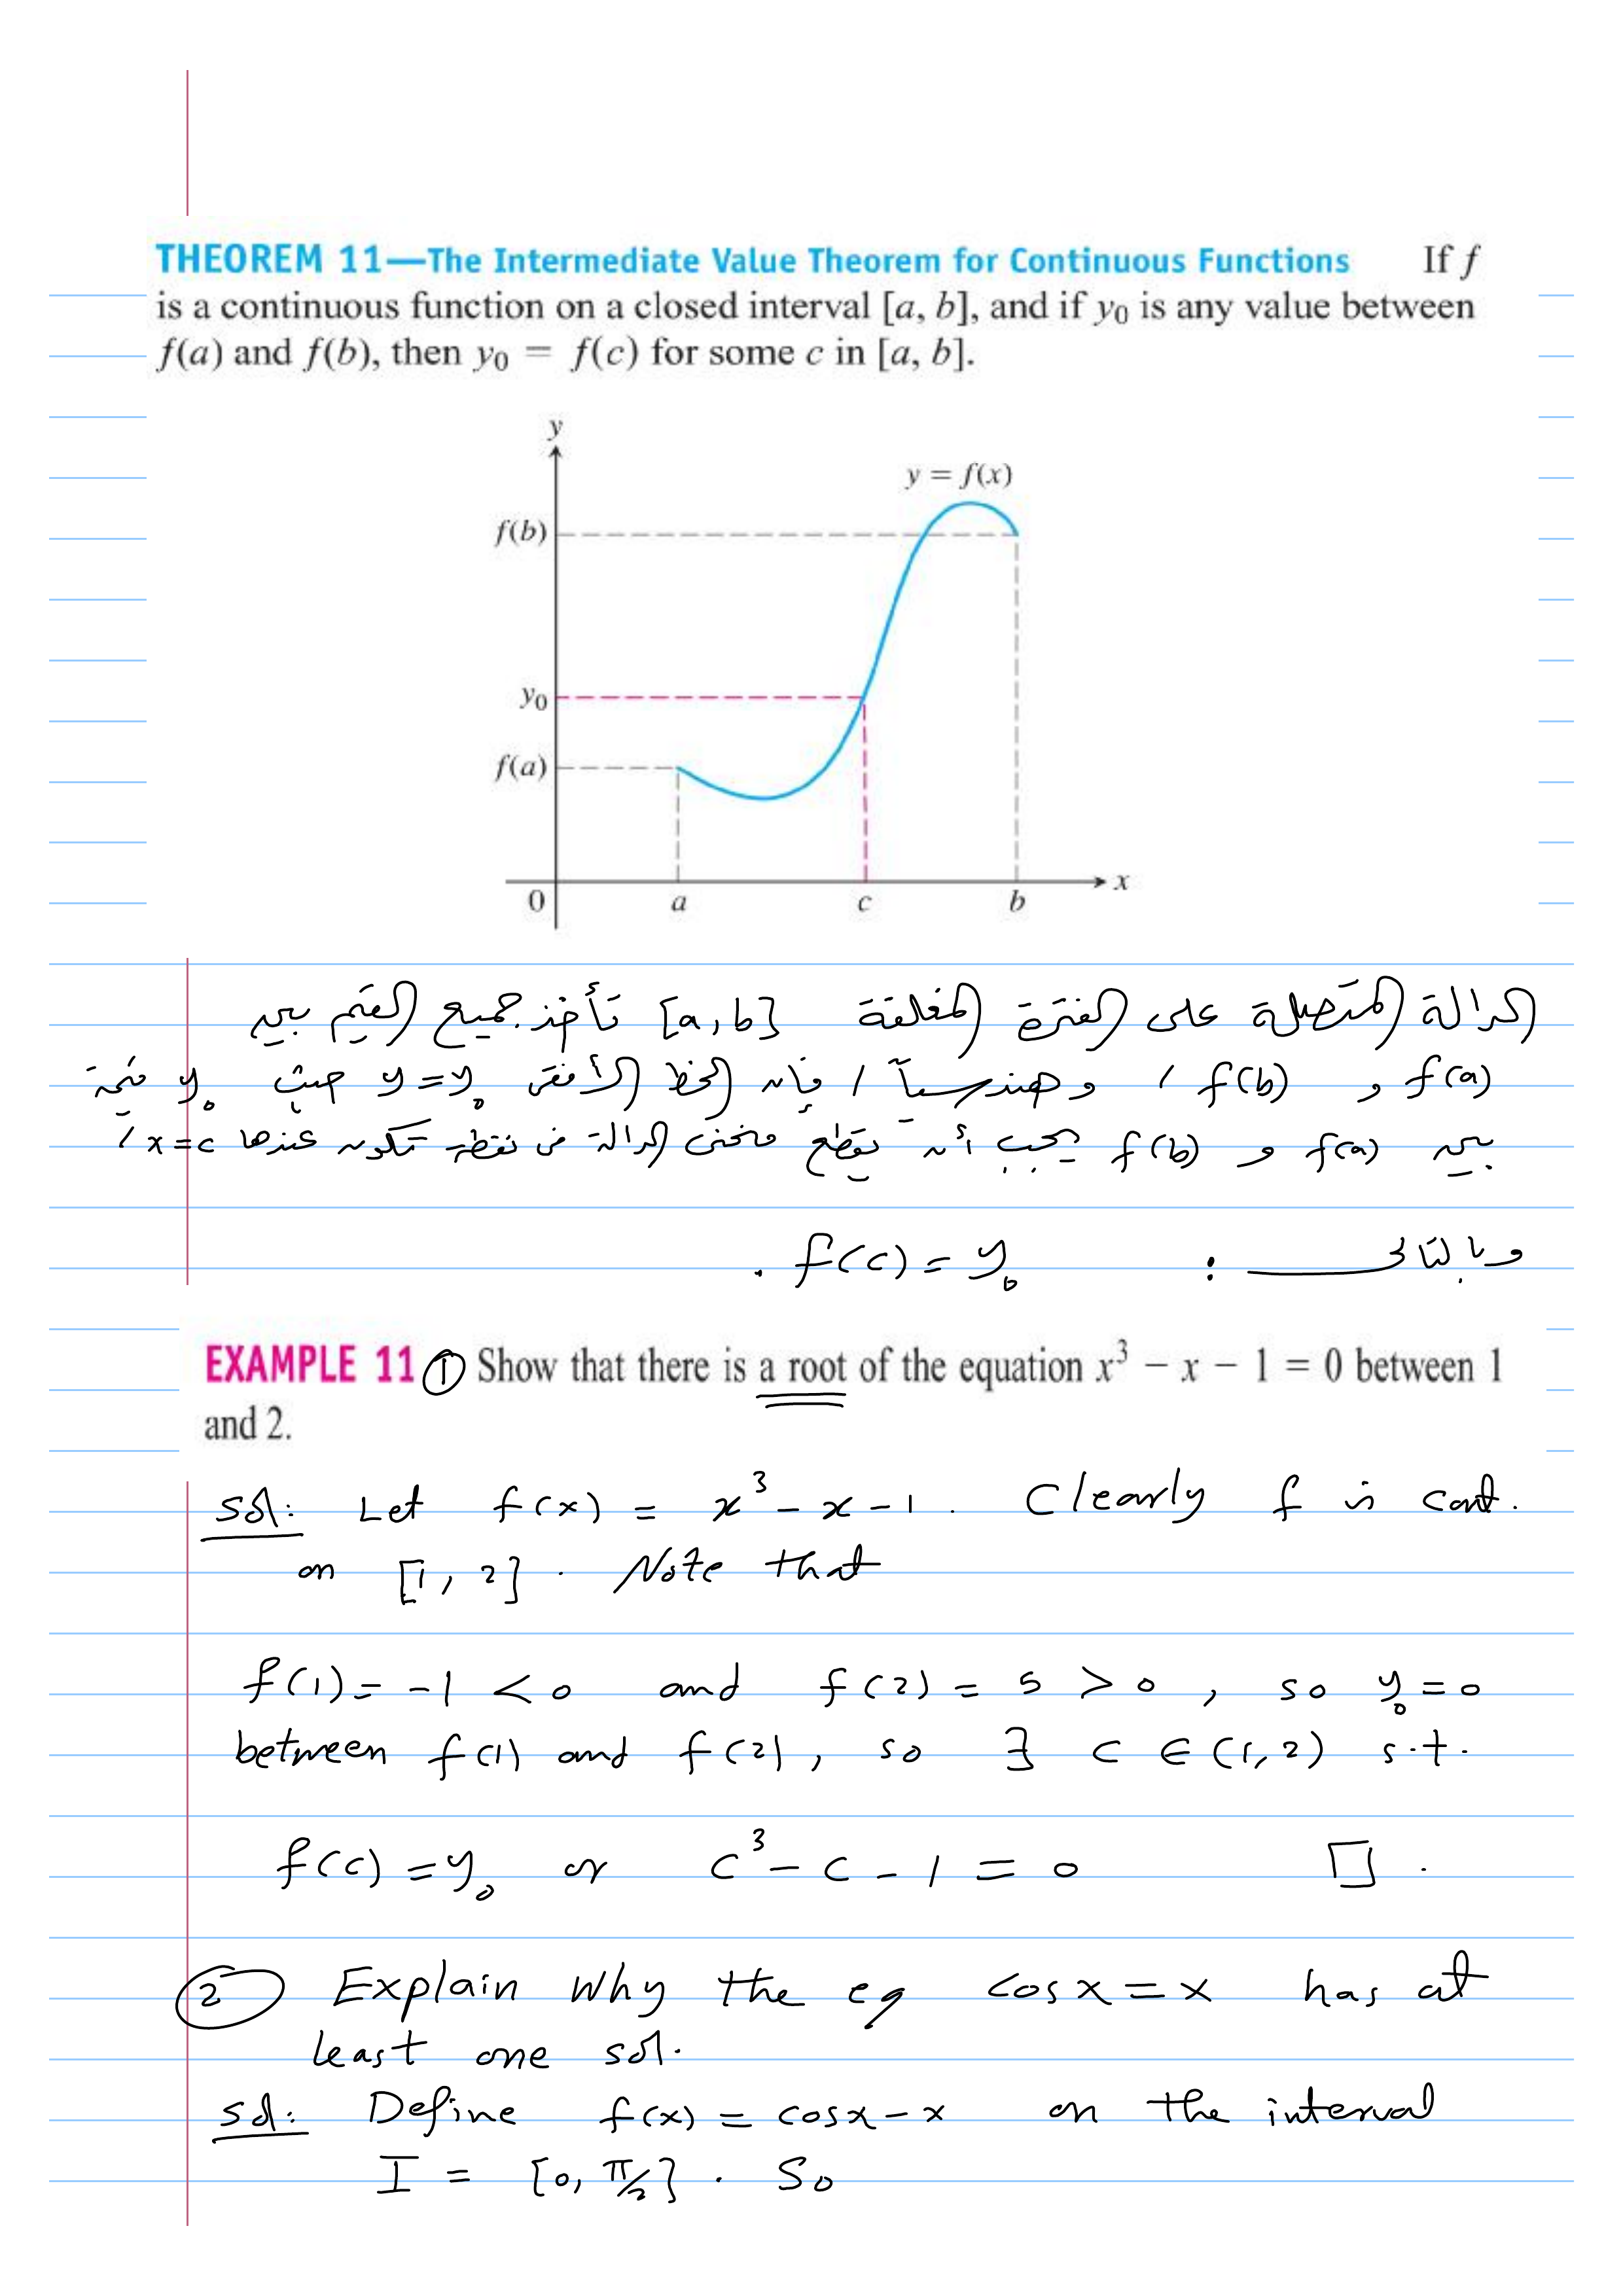 THEOREM 11—The Intermediate Value Theorem for Continuous Functions If f
is a continuous function on a closed interval [a, b], and if y₀ is any value between
f(a) and f(b), then y₀ = f(c) for some c in [a, b].
y
y = f(x)
f(b)
y₀
f(a)
0 a c b x
الدالة المتصلة على الفترة المغلقة [a,b] تأخذ جميع القيم بين
f(a) و f(b) ، وهندسياً ، فإن الخط الأفقي y=y₀ حيث y₀ قيمة
بين f(a) و f(b) يجب أن يقطع منحنى الدالة في نقطة تكون عندها x=c ،
وبالتالي : f(c) = y₀ .
EXAMPLE 11 ① Show that there is a root of the equation x³ − x − 1 = 0 between 1
and 2.
sol: Let f(x) = x³ - x - 1 . Clearly f is cont.
on [1, 2] . Note that
f(1) = -1 < 0 and f(2) = 5 > 0 , so y₀ = 0
between f(1) and f(2) , so ∃ c ∈ (1,2) s.t.
f(c) = y₀ or c³ - c - 1 = 0 □ .
② Explain why the eq cos x = x has at
least one sol.
sol: Define f(x) = cosx - x on the interval
I = [0, π/2] . So